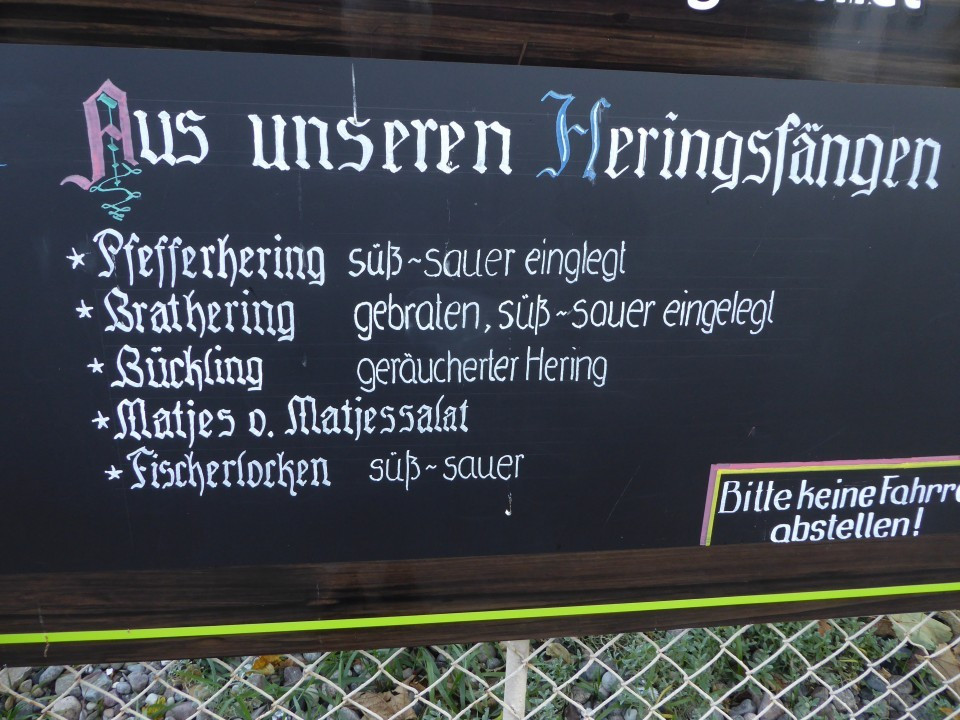 Aus unseren Heringsfängen
* Pfefferhering süß~sauer einglegt
* Brathering gebraten, süß~sauer eingelegt
* Bückling geräucherter Hering
* Matjes o. Matjessalat
* Fischerlocken süß~sauer
Bitte keine Fahrr
abstellen!